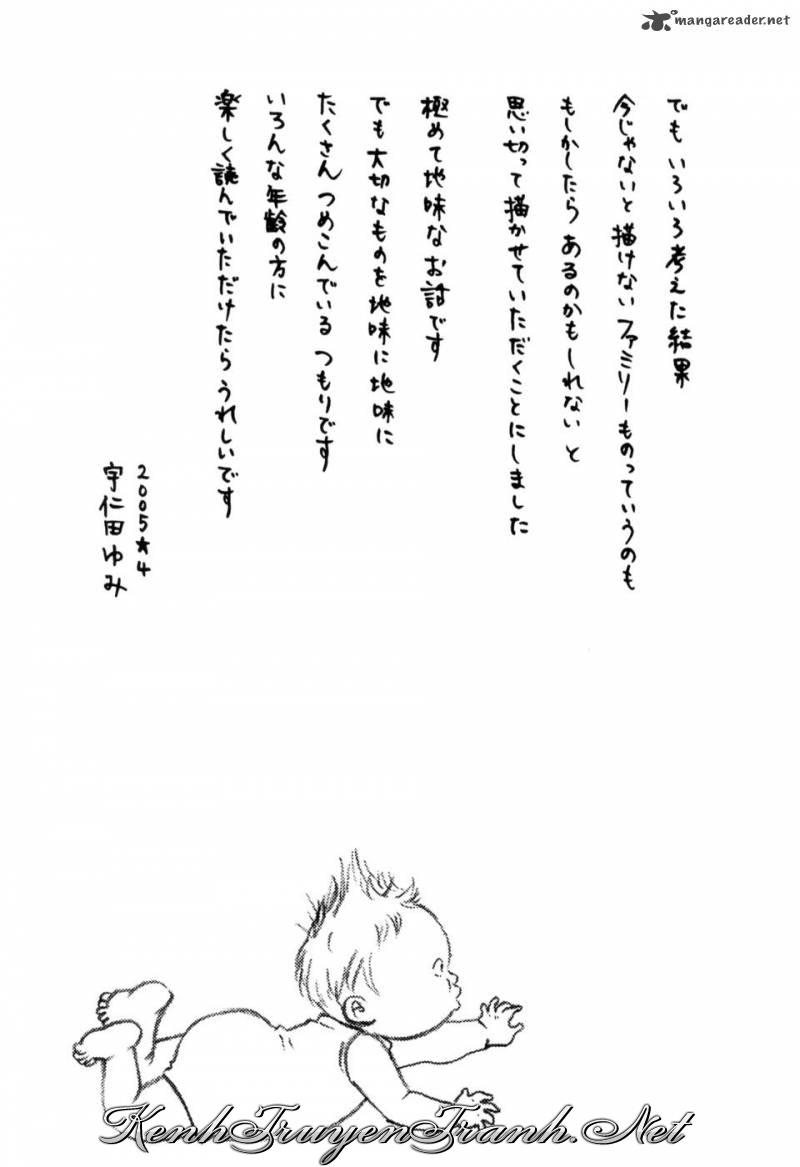 mangareader.net
でも いろいろ考えた結果
今じゃないと描けない ファミリーものっていうのも
もしかしたら あるのかもしれない と
思い切って描かせていただくことにしました
極めて地味なお話です
でも 大切なものを地味に地味に
たくさん つめこんでいる つもりです
いろんな年齢の方に
楽しく読んでいただけたら うれしいです
2005★4
宇仁田ゆみ
KenhTruyenTranh.Net